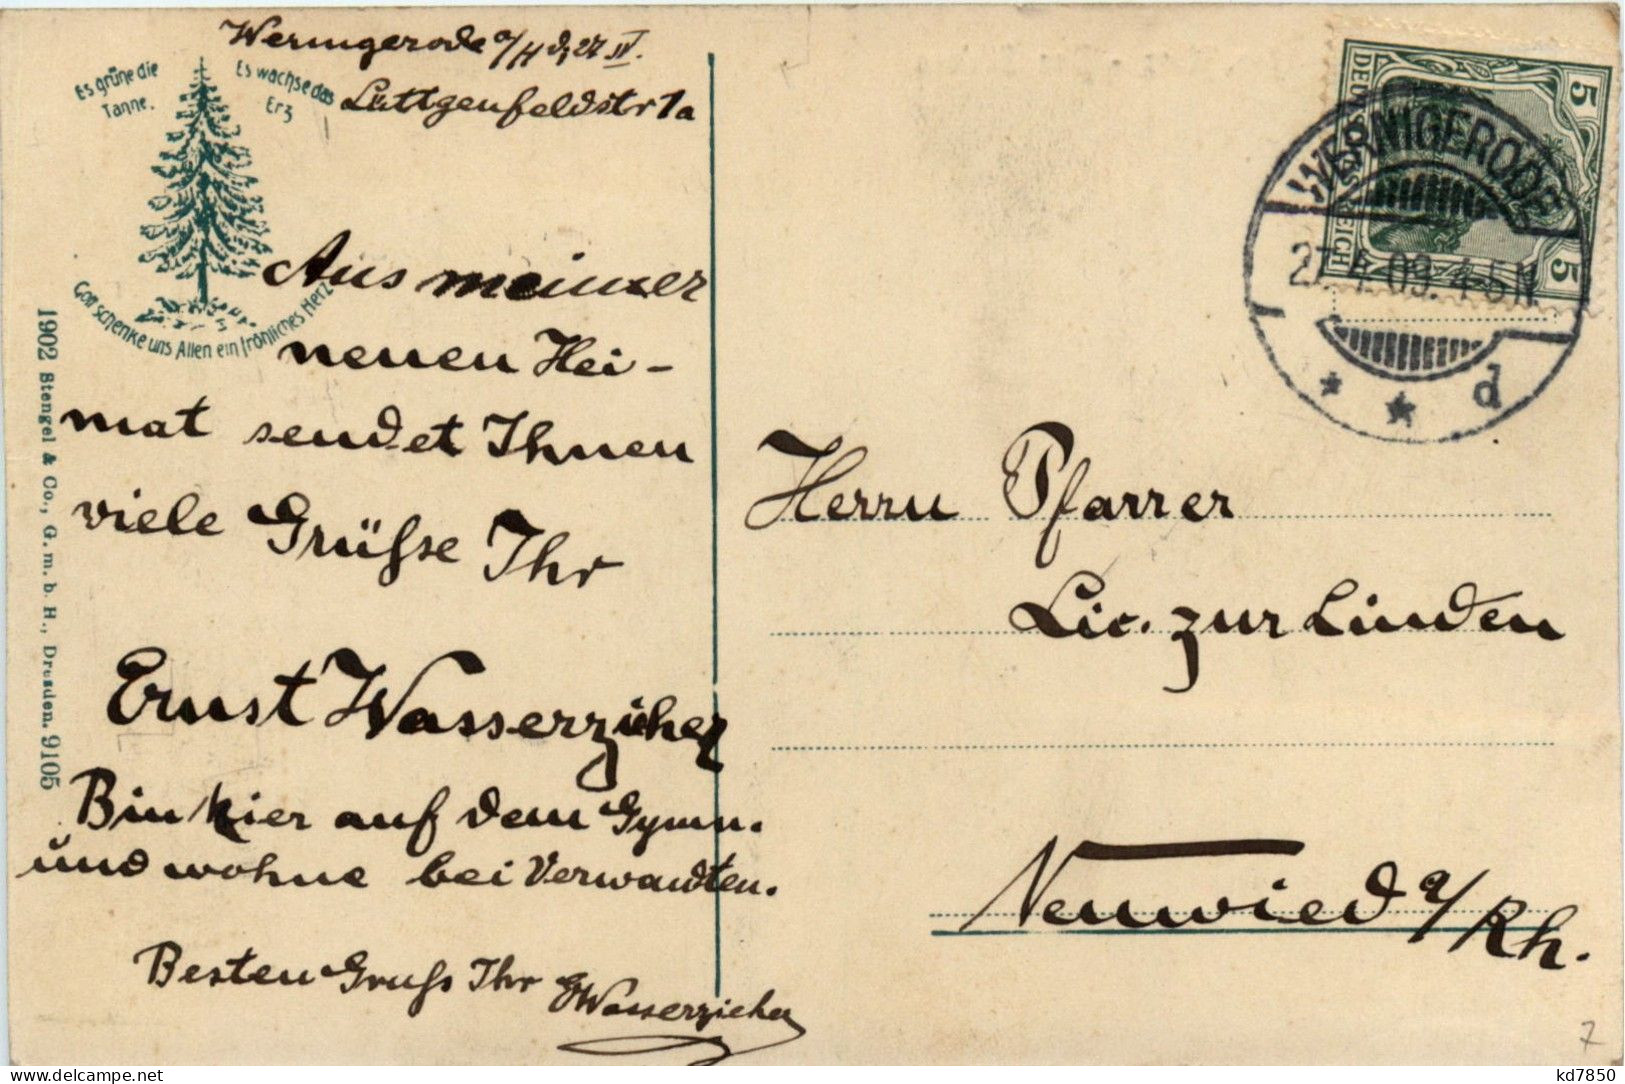 Wernigerode a/H d, 27 IV.
Lüttgenfeldstr 1a
Es grüne die
Tanne.
Es wachse das
Erz
Gott schenke uns Allen ein fröhliches Herz
Aus meiner
neuen Hei-
mat sendet Ihnen
viele Grüsse Ihr
Ernst Wasserzieher
Bin hier auf dem Gymn.
und wohne bei Verwandten.
Besten Gruss Ihr
EWasserzieher
1902 Stengel & Co., G. m. b. H., Dresden. 9105
DEUTSCHES REICH
5
5
WERNIGERODE
27.4.09. 4-5 N.
* * d
Herrn Pfarrer
Lic. zur Linden
Neuwied a/Rh.
7
kd7850